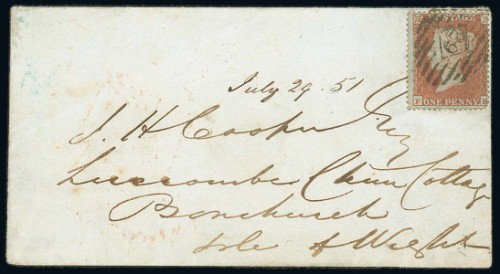 POSTAGE
ONE PENNY
July 29. 51
J. H. Cooper Esq
Luccombe Chine Cottage
Bonchurch
Isle of Wight